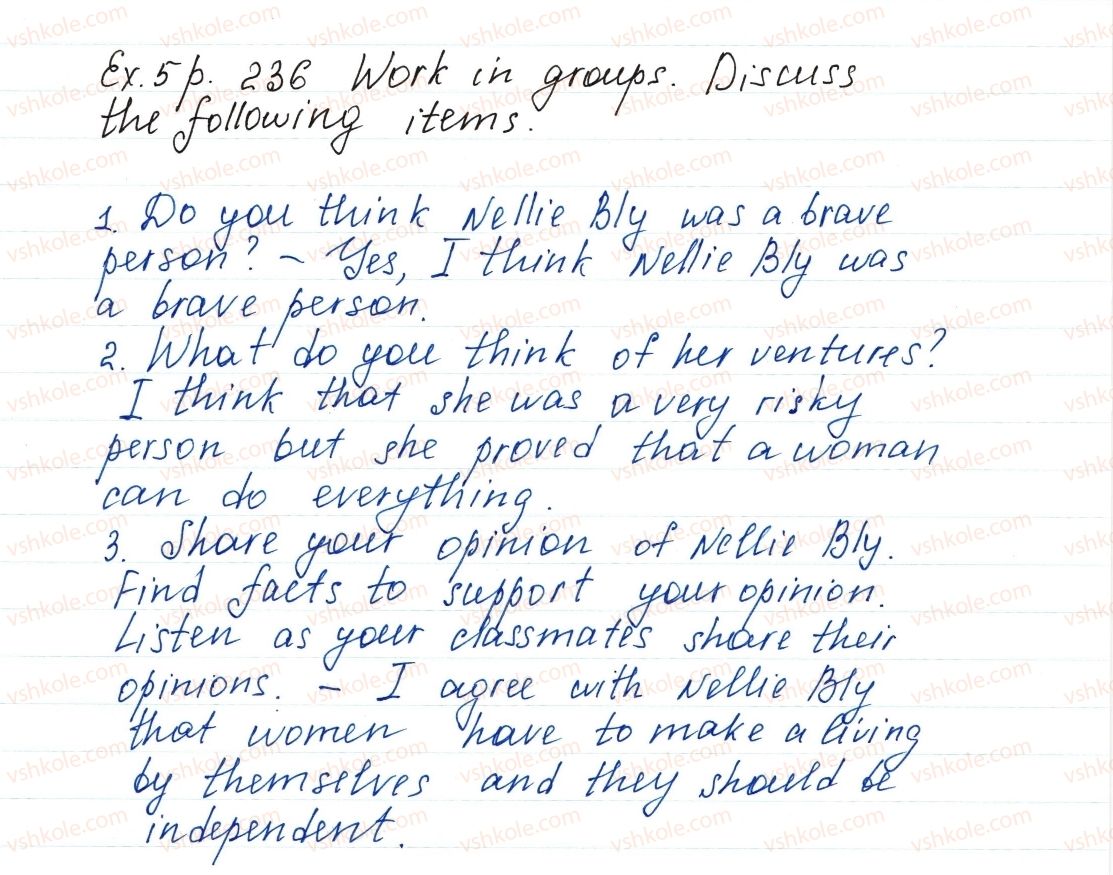 Ex. 5 p. 236 Work in groups. Discuss
the following items.
1. Do you think Nellie Bly was a brave
person? – Yes, I think Nellie Bly was
a brave person.
2. What do you think of her ventures?
I think that she was a very risky
person but she proved that a woman
can do everything.
3. Share your opinion of Nellie Bly.
Find facts to support your opinion.
Listen as your classmates share their
opinions. – I agree with Nellie Bly
that women have to make a living
by themselves and they should be
independent.
vshkole.com